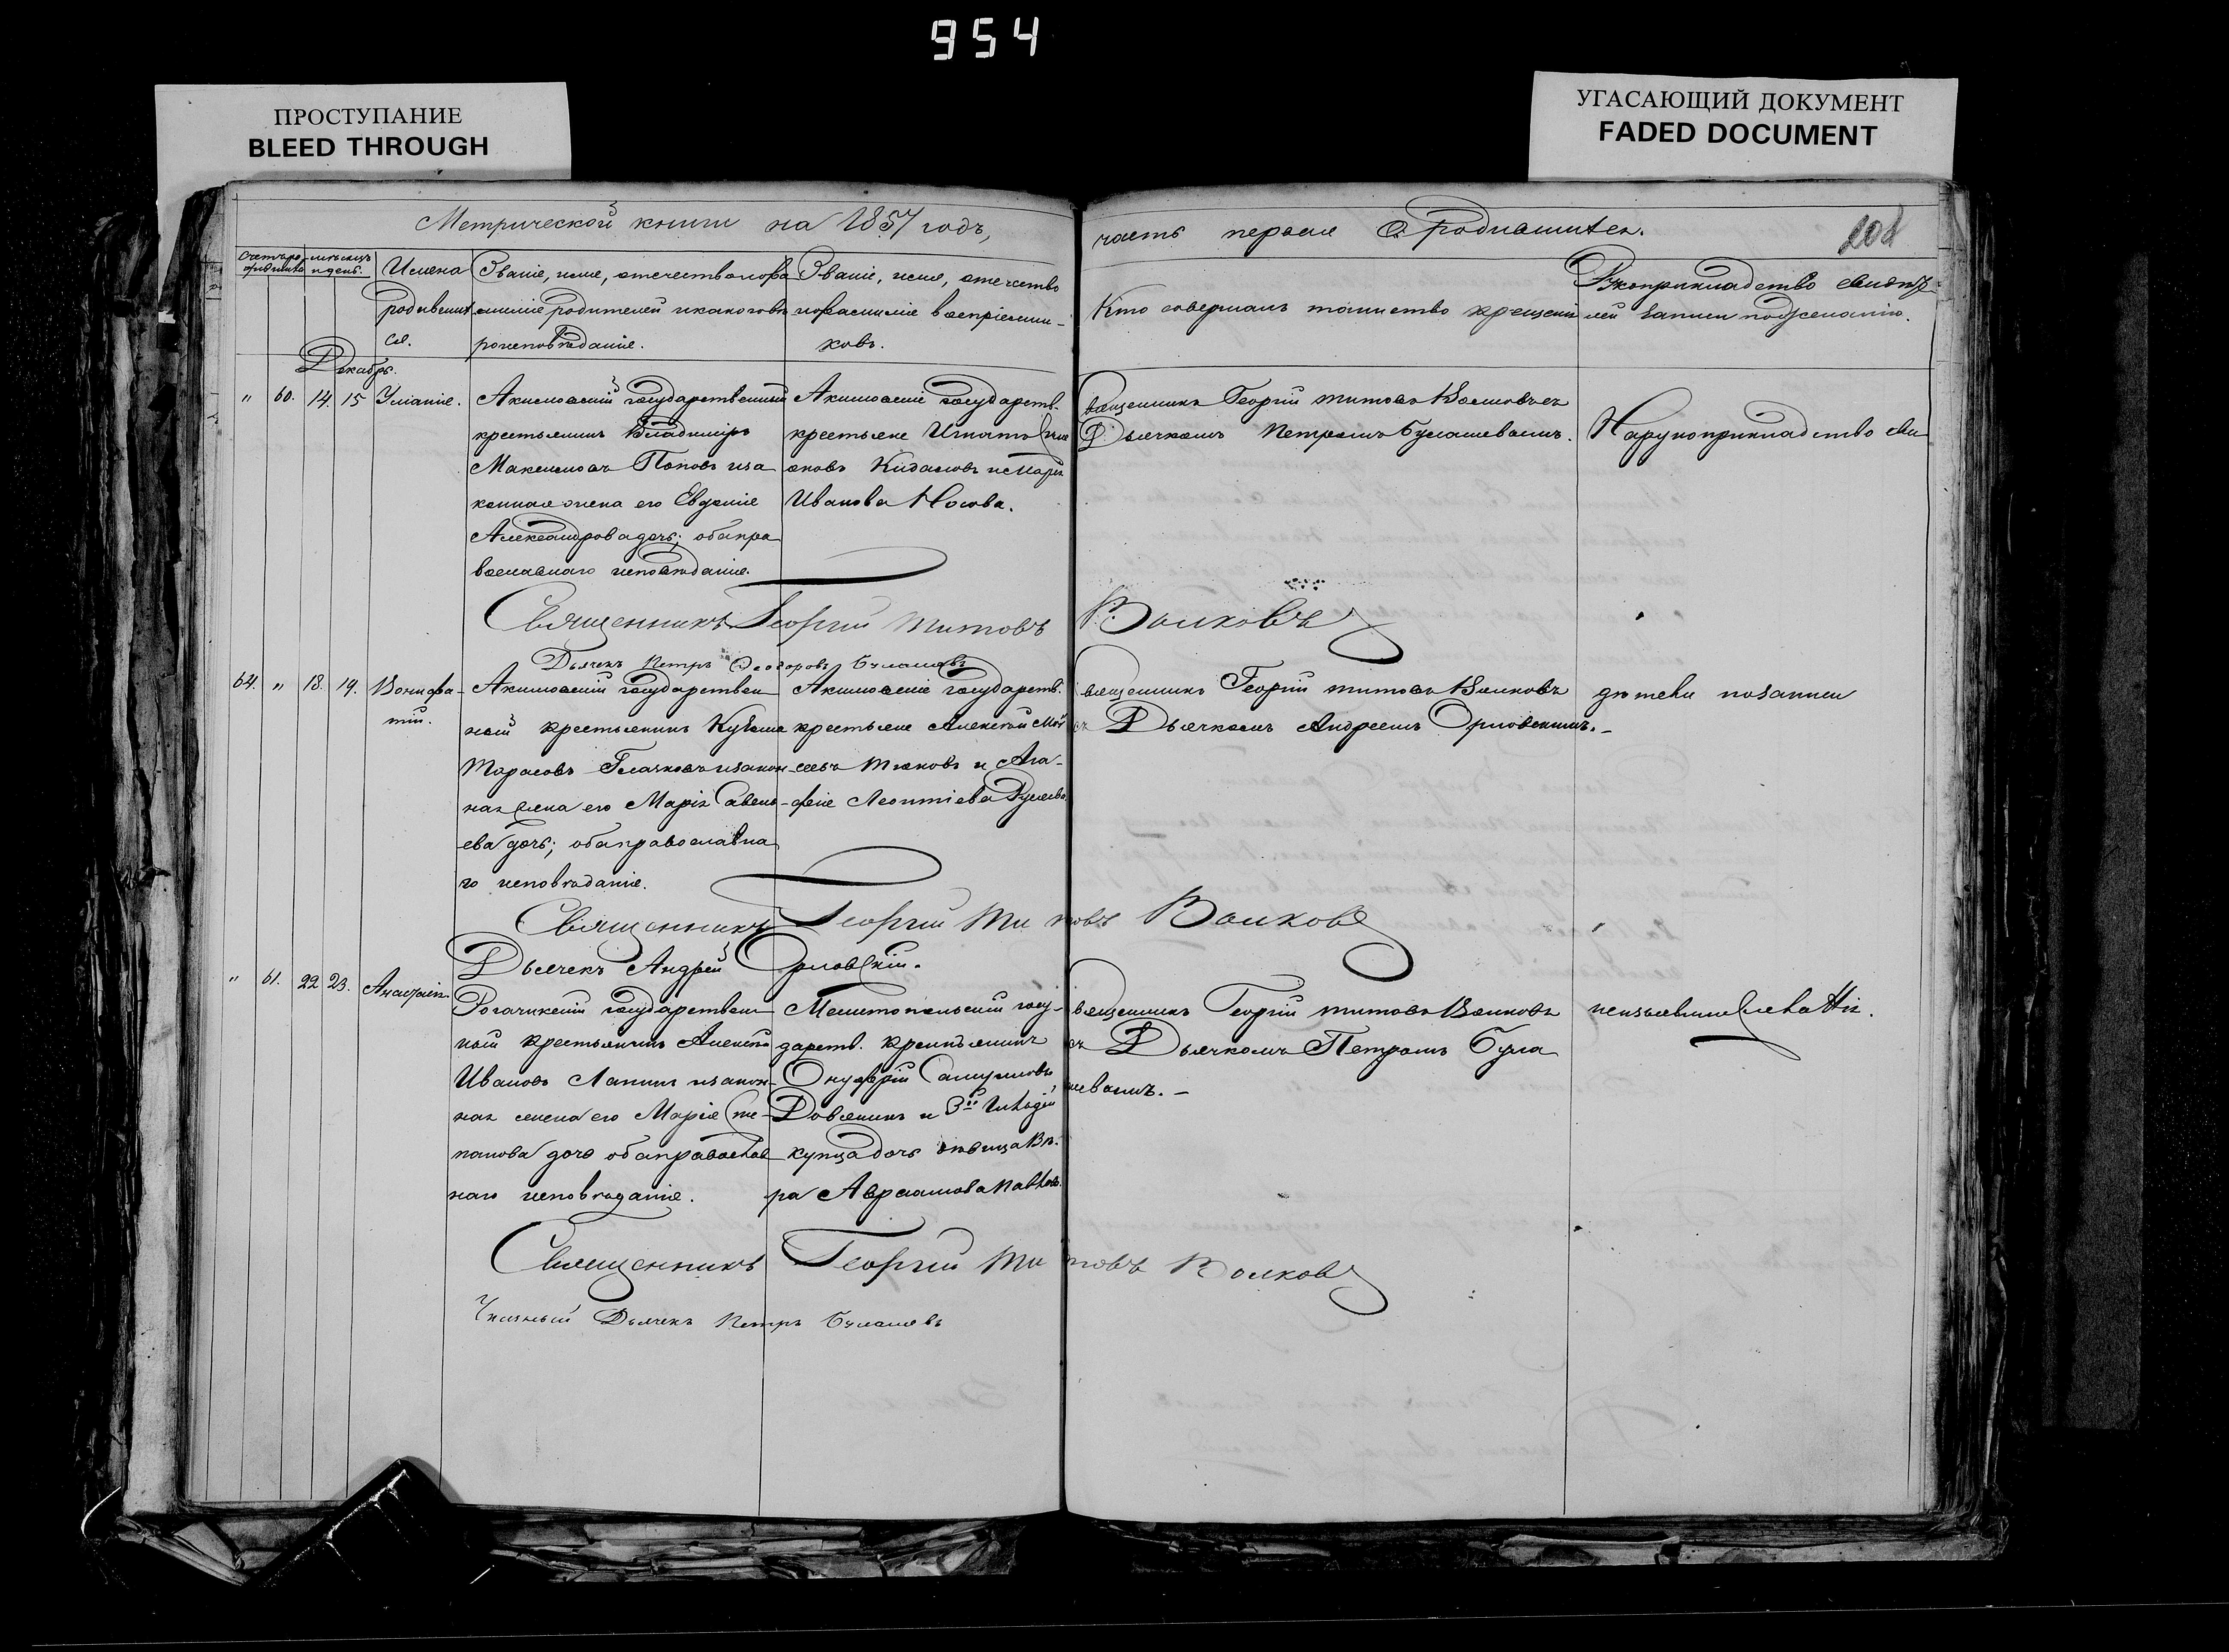 954
ПРОСТУПАНИЕ
BLEED THROUGH
УГАСАЮЩИЙ ДОКУМЕНТ
FADED DOCUMENT
Метрической книги на 1857 годъ,
часть первая о родившихся.
208
Имена
родившихся.
Званіе, имя, отечество и фа
милія родителей и какого вѣ
роисповѣданія.
Званіе, имя, отечество
и фамилія воспріемни-
ковъ.
Кто совершалъ таинство крещенія
Рукоприкладство свидѣте
лей записи по желанію.
Декабрь.
" 60. 14. 15 Уліанія.
Акимовскій государственный
крестьянинъ Владиміръ
Максимовъ Поповъ и за
конная жена его Евдокія
Александрова дочь; оба пра
вославнаго исповѣданія.
Акимовскіе государств.
крестьяне Игнатъ
Кидаловъ и Марія
Иванова Носова.
Священникъ Георгій Титовъ Волковъ съ
Дьячкомъ Петромъ Булашевымъ.
На рукоприкладство сви
Священникъ Георгій Титовъ Волковъ
Дьячекъ Петръ Ѳеодоровъ Булашевъ
64. " 18. 19. Вонифа-
тій.
Акимовскій государствен
ный крестьянинъ Кузьма
Тарасовъ Глачковъ и закон-
ная жена его Марія Савель-
ева дочь; оба православна
го исповѣданія.
Акимовскіе государств.
крестьяне Алексѣй Мои
сеевъ Тюковъ и Ага-
фія Леонтіева
Священникъ Георгій Титовъ Волковъ
съ Дьячкомъ Андреемъ Орловскимъ.-
дѣтели по записи
Священникъ Георгій Титовъ Волковъ
Дьячекъ Андрей Орловскій.
" 61. 22 23. Анастасія
Рогачикскій государствен
ный крестьянинъ Алексѣй
Ивановъ Лапинъ и закон-
ная жена его Марія Сте-
панова дочь оба православ
наго исповѣданія.
Мелитопольскій госу-
дарств. крестьянинъ
Онуфрій Самуиловъ
Довяникъ и 3й гильдіи
купца дочь дѣвица Вѣ-
ра Авраамова Павлова.
Священникъ Георгій Титовъ Волковъ
съ Дьячкомъ Петромъ Була
шевымъ. -
неизъявили желанія.
Священникъ Георгій Титовъ Волковъ
Дьячекъ Петръ Булашевъ